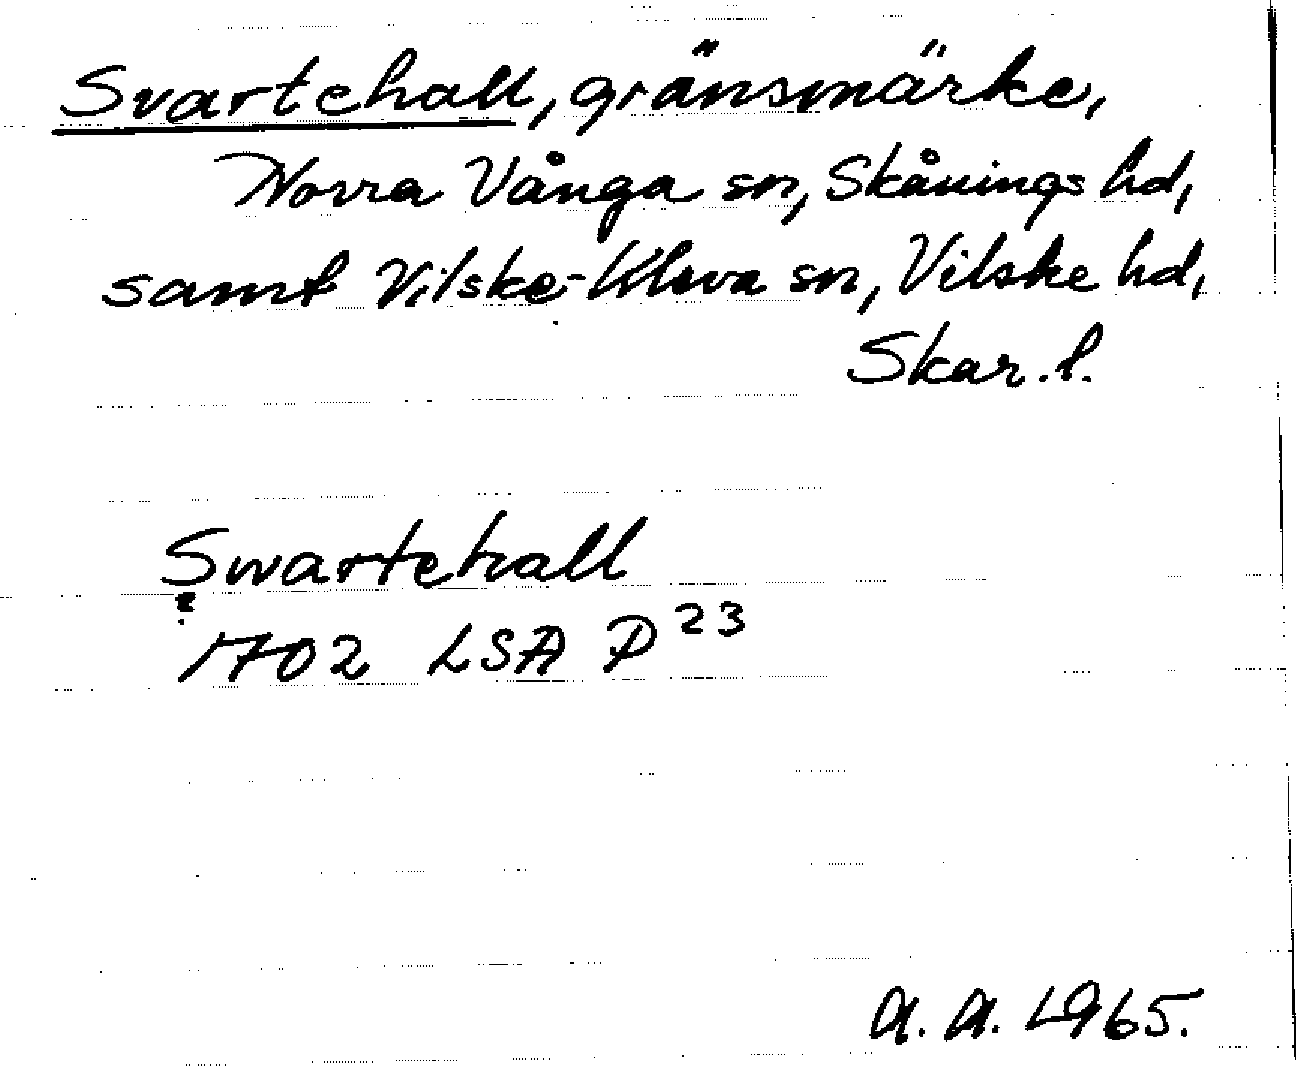 Svartehall, gränsmärke,
Norra Vånga sn, Skånings hd,
samt Vilske-Kleva sn, Vilske hd,
Skar. l.
Swartehall
1702 LSA P 23
A. A. 1965.